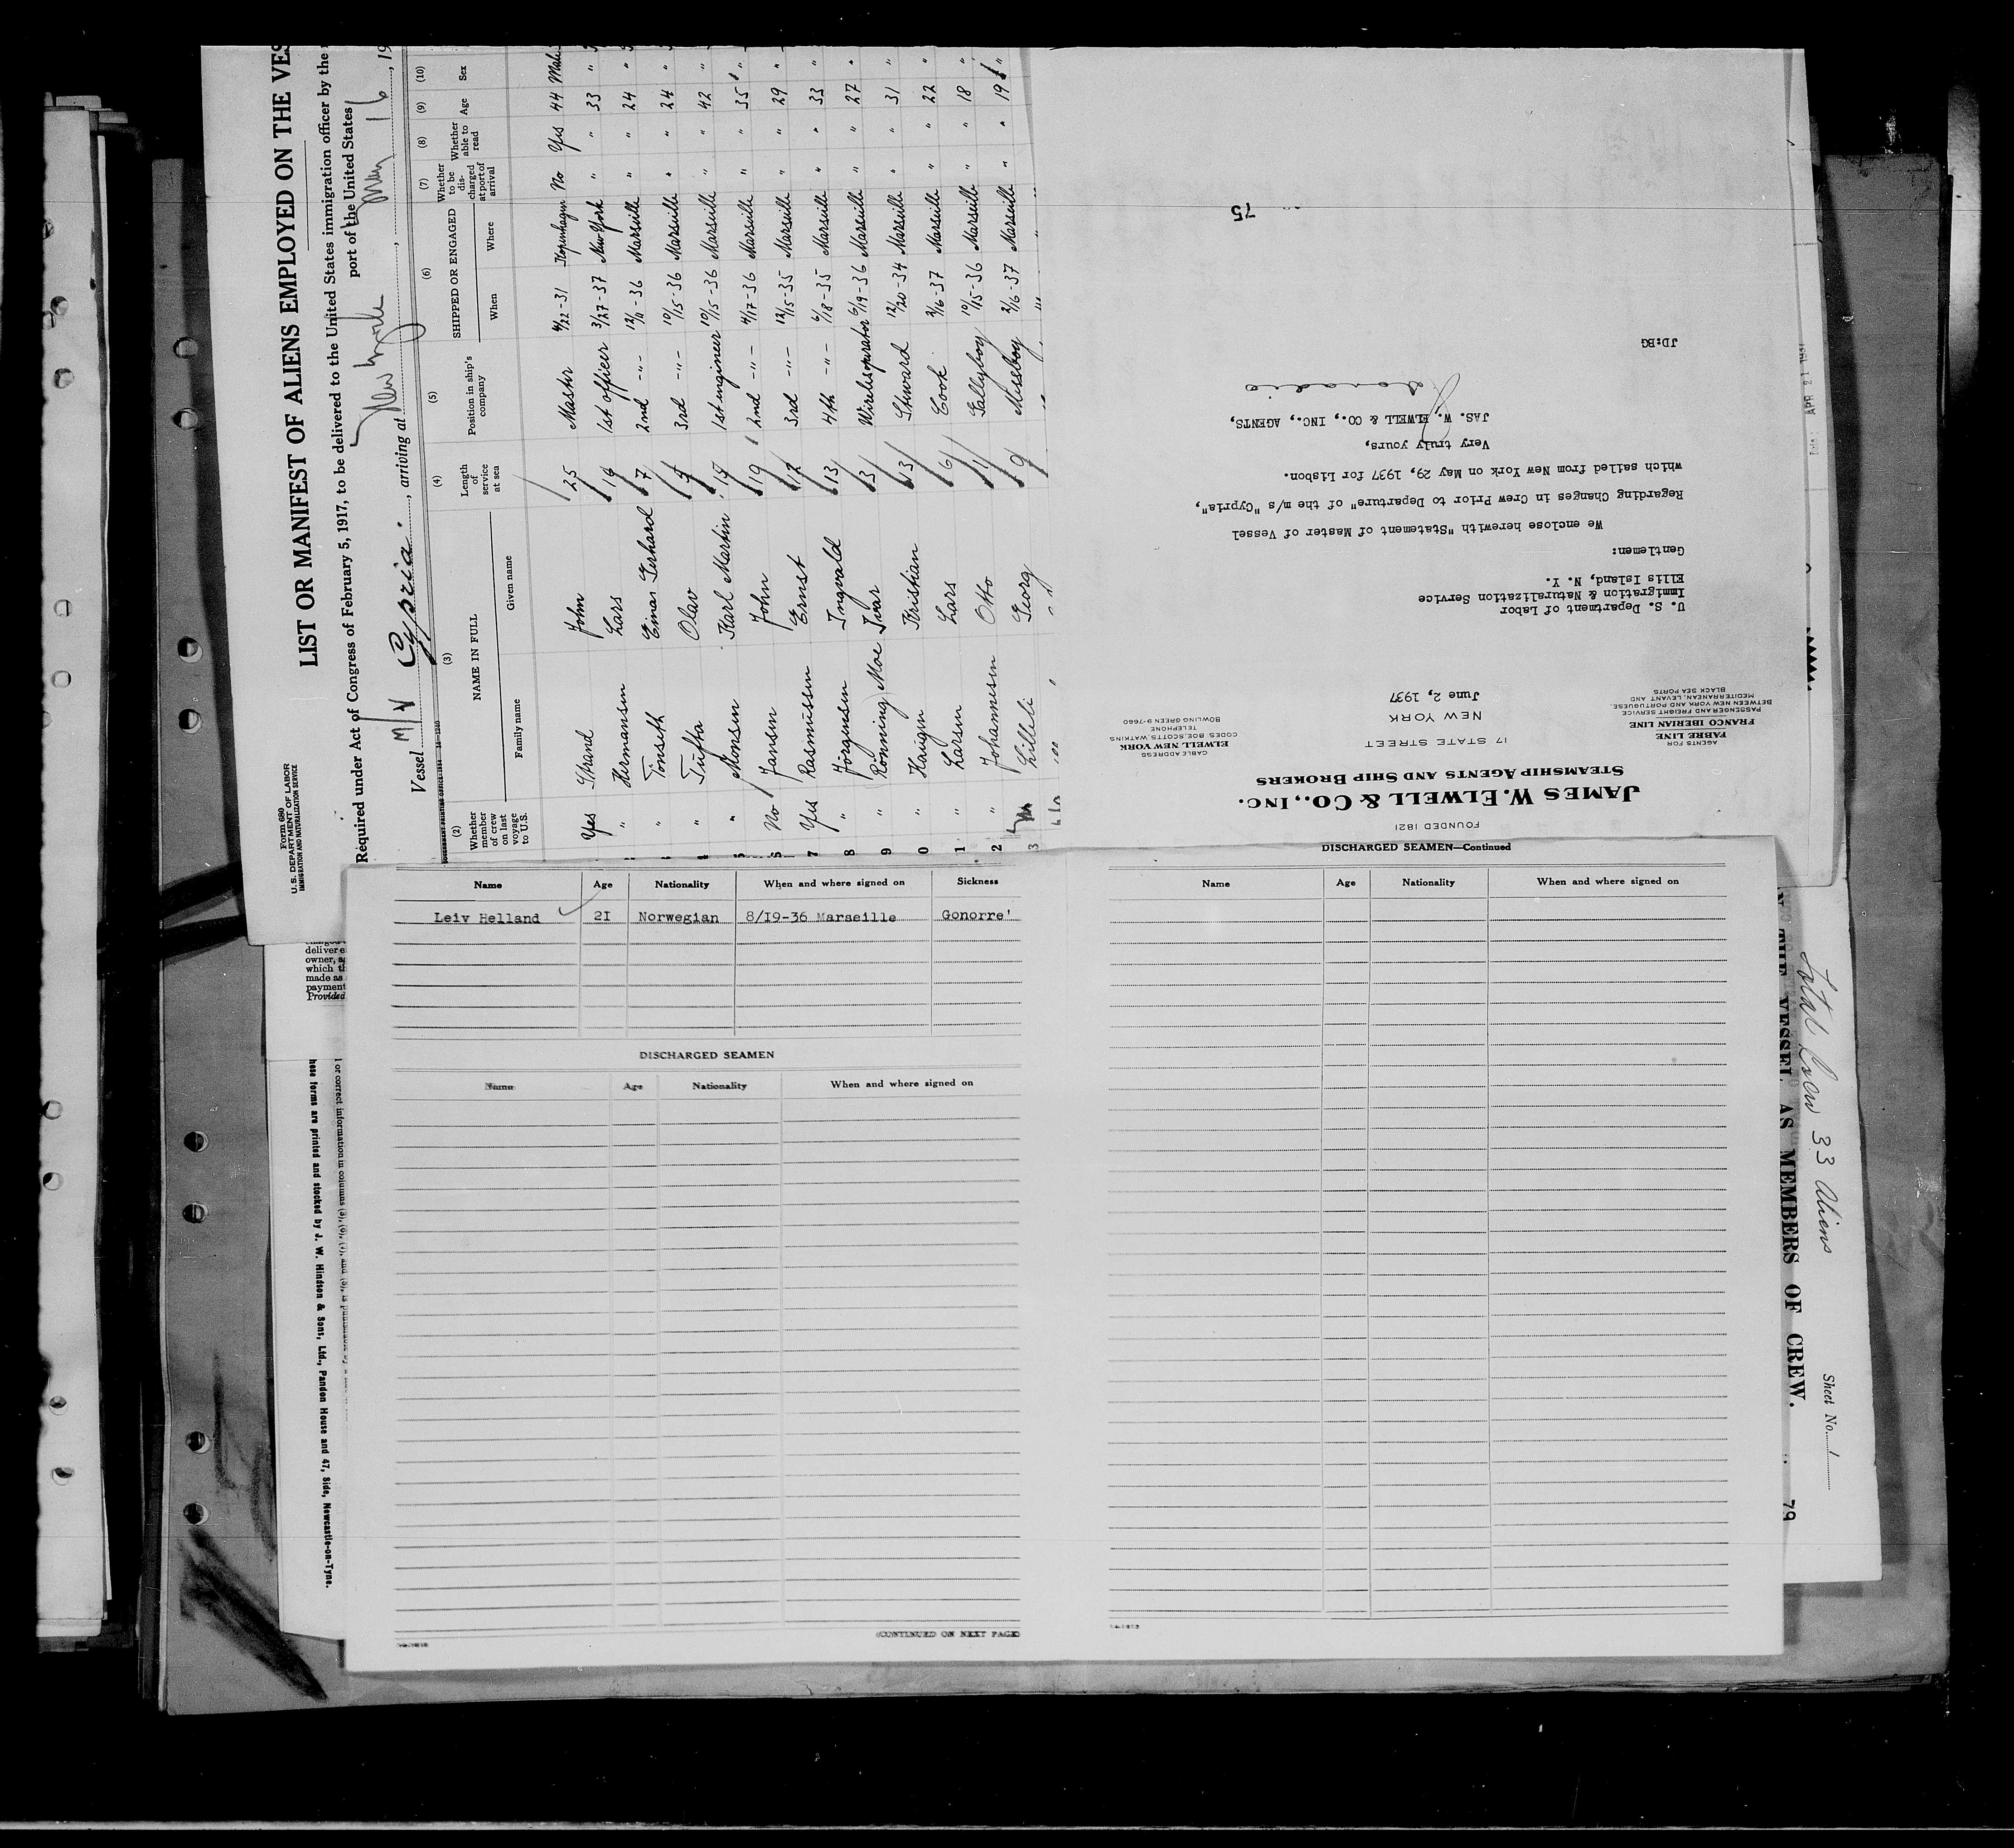 Form 680
U. S. DEPARTMENT OF LABOR
IMMIGRATION AND NATURALIZATION SERVICE
LIST OR MANIFEST OF ALIENS EMPLOYED ON THE VES
Required under Act of Congress of February 5, 1917, to be delivered to the United States immigration officer by the
port of the United States
Vessel M/V Cypria, arriving at New York, May 16, 19
(2) (3) (4) (5) (6) (7) (8) (9) (10)
Whether member of crew on last voyage to U.S.
NAME IN FULL
Family name Given name
Length of service at sea
Position in ship's company
SHIPPED OR ENGAGED
When Where
Whether to be discharged at port of arrival
Whether able to read
Age
Sex
Yes Strand John 25 Master 4/22-31 Kopenhagen No Yes 44 Male
" Hermansen Lars 19 1st officer 3/27-37 New York " " 33 "
" Tönseth Einar Gerhard 7 2nd -"- 12/11-36 Marseille " " 24 "
4 " Tufta Olav 3rd -"- 10/15-36 Marseille " " 24 "
5 " Monsen Karl Martin 1st engineer 10/15-36 Marseille " " 42 "
6 No Jansen John 19 2nd -"- 4/17-36 Marseille " " 35 "
7 Yes Rasmussen Ernst 12 3rd -"- 12/15-35 Marseille " " 29 "
8 " Jörgensen Ingvald 13 4th -"- 6/18-35 Marseille " " 33 "
9 " Rönning Moe Ivar 3 Wirelesoperator 6/19-36 Marseille " " 27 "
0 " Haugen Kristian 13 Steward 12/20-34 Marseille " " 31 "
1 " Larsen Lars 6 Cook 2/16-37 Marseille " " 22 "
2 " Johannesen Otto 1 Galleyboy 10/15-36 Marseille " " 18 "
3 Lilleli Georg 9 Messboy 2/16-37 Marseille " " 19 "
FOUNDED 1821
JAMES W. ELWELL & CO., INC.
STEAMSHIP AGENTS AND SHIP BROKERS
17 STATE STREET
NEW YORK
AGENTS FOR
FABRE LINE
FRANCO IBERIAN LINE
PASSENGER AND FREIGHT SERVICE
BETWEEN NEW YORK AND PORTUGUESE,
MEDITERRANEAN, LEVANT AND
BLACK SEA PORTS
CABLE ADDRESS
ELWELL NEW YORK
CODES, BOE, SCOTTS, WATKINS
TELEPHONE
BOWLING GREEN 9-7660
June 2, 1937
U. S. Department of Labor
Immigration & Naturalization Service
Ellis Island, N. Y.
Gentlemen:
We enclose herewith "Statement of Master of Vessel
Regarding Changes in Crew Prior to Departure" of the m/s "Cypria",
which sailed from New York on May 29, 1937 for Lisbon.
Very truly yours,
JAS. W. ELWELL & CO., INC., AGENTS,
JD:BG
75
APR 21 1937
Name Age Nationality When and where signed on Sickness
Leiv Helland 2I Norwegian 8/I9-36 Marseille Gonorre'
DISCHARGED SEAMEN
Name Age Nationality When and where signed on
(CONTINUED ON NEXT PAGE)
DISCHARGED SEAMEN—Continued
Name Age Nationality When and where signed on
deliver
owner, a
which th
made as
payment
Provided
hese forms are printed and stocked by J. W. Hindson & Sons, Ltd., Pandon House and 47, Side, Newcastle-on-Tyne.
Total Crew 33 Aliens
Sheet No. 1
N THE VESSEL AS MEMBERS OF CREW.
79